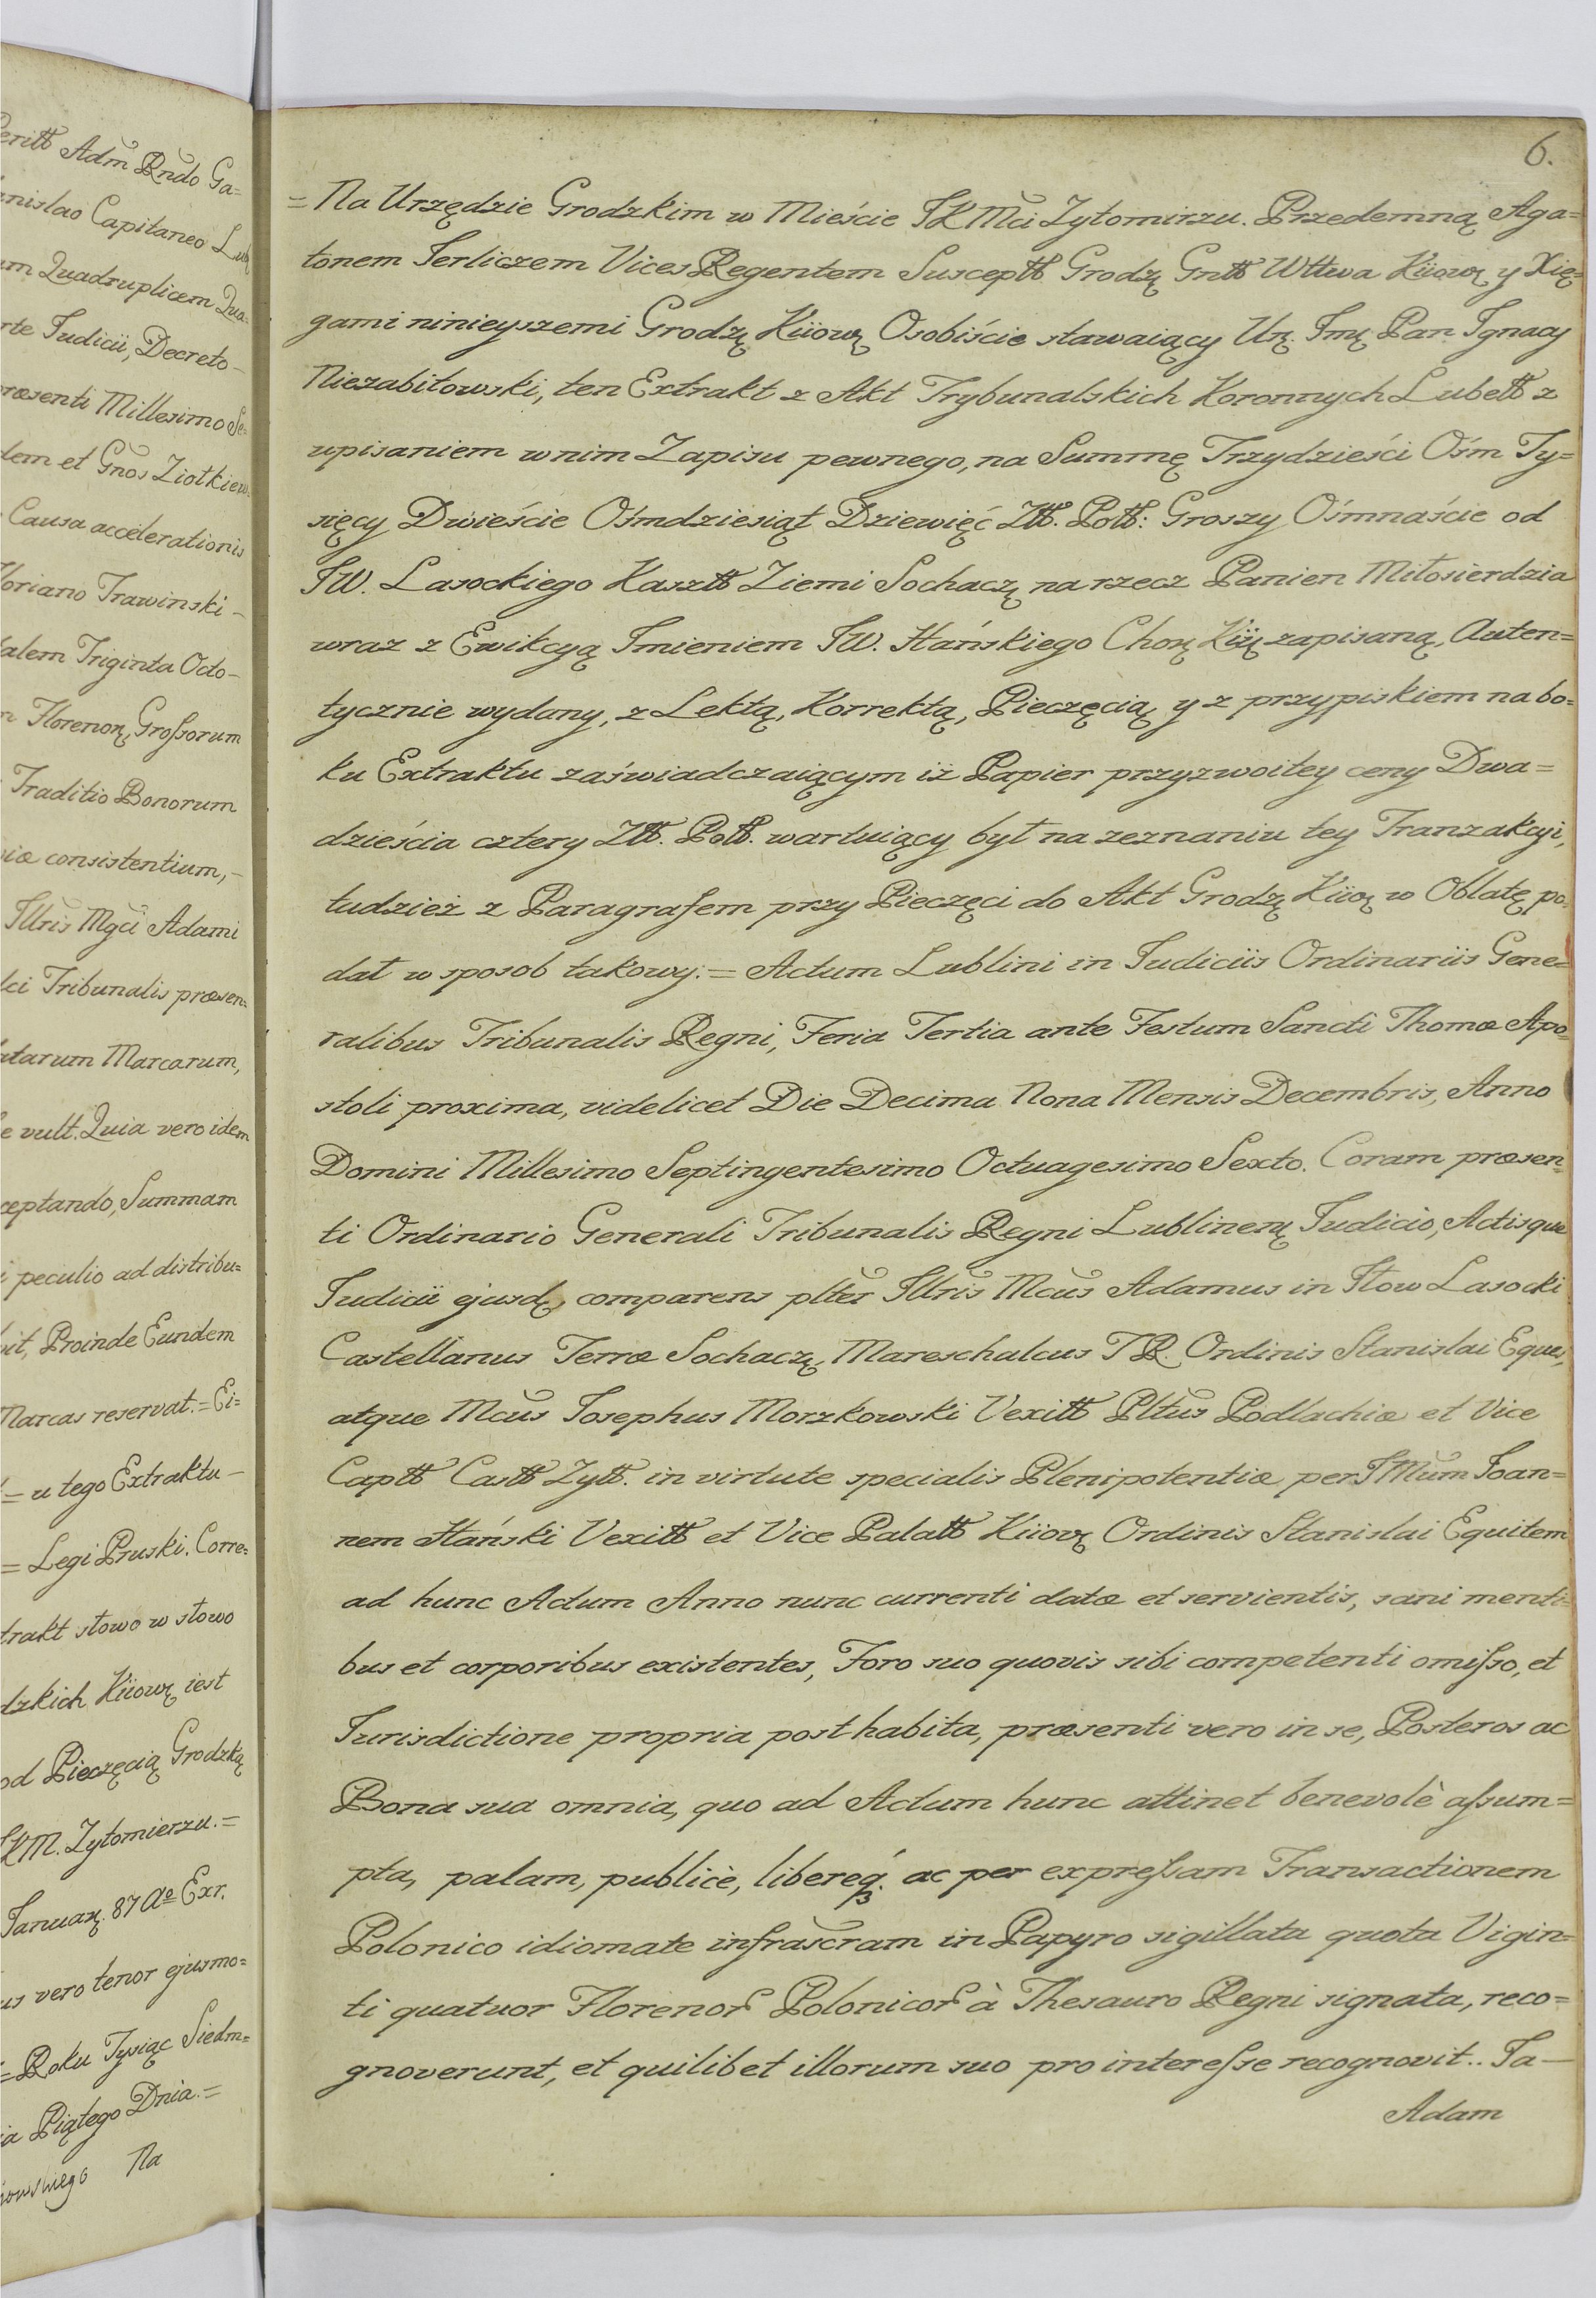 eritt Adm Rndo Ga=
nislao Capitaneo Lub
um Quadruplicem Qua=
rte Judicii, Decreto –
præsenti Millesimo Se=
dem et Gnos Ziołkiew
Causa accelerationis
loriano Trawinski –
alem Triginta Octo –
m Florenorꝫ Grossorum
Traditio Bonorum
iæ consistentium, –
Illris Mgci Adami
lci Tribunalis præsen=
atarum Marcarum,
e vult. Quia vero idem
ceptando, Summam
i peculio ad distribu=
it, Proinde Eundem
Marcas reservat. = Ei=
= u tego Extraktu –
= Legi Pruski. Corre=
trakt słowo w słowo
dzkich Kiiowꝫ iest
od Pieczęcią Grodzką
JKM. Zytomierzu. =
Januarꝫ. 87 Ao Exr.
us vero tenor ejusmo=
= Roku Tysiąc Siedm=
ia Piątego Dnia. =
iowskiego Na
6.
= Na Urzędzie Grodzkim w Mieście JKMci Zytomirzu. Przedemną Aga=
tonem Jerliczem Vices Regentem Susceptt Grodzꝫ Gntt Wttwa Kiiowꝫ y Xię=
gami ninieyszemi Grodzꝫ Kiiowꝫ Osobiście stawaiący Urꝫ. Jmꝫ Pan Ignacy
Niezabitowski, ten Extrakt z Akt Trybunalskich Koronnych Lubett z
upisaniem w nim Zapisu pewnego, na Summę Trzydzieści Ośm Ty=
sięcy Dwieście Ośmdziesiąt Dziewięć Ztt. Pott: Groszy Ośmnaście od
JW. Lasockiego Kasztt Ziemi Sochaczꝫ na rzecz Panien Miłosierdzia
wraz z Ewikcyą Imieniem JW. Hańskiego Chorꝫ Kiiꝫ zapisaną, Auten=
tycznie wydany, z Lektą, Korrektą, Pieczęcią y z przypiskiem na bo=
ku Extraktu zaświadczaiącym iż Papier przyzwoitey ceny Dwa=
dzieścia cztery Ztt. Pott. wartuiący był na zeznaniu tey Tranzakcyi,
tudzież z Paragrafem przy Pieczęci do Akt Grodzꝫ Kiioꝫ w Oblatę po=
dał w sposob takowy: = Actum Lublini in Judiciis Ordinariis Gene=
ralibus Tribunalis Regni, Feria Tertia ante Festum Sancti Thomæ Apo=
stoli proxima, videlicet Die Decima Nona Mensis Decembris, Anno
Domini Millesimo Septingentesimo Octuagesimo Sexto. Coram præsen=
ti Ordinario Generali Tribunalis Regni Lublinenꝫ Judicio, Actisque
Judicii ejusdꝫ, comparens plter Illris Mcus Adamus in Iłow Lasocki
Castellanus Terræ Sochaczꝫ, Mareschalcus TR. Ordinis Stanislai Eques,
atque Mcus Josephus Morzkowski Vexitt Pltus Podlachiæ et Vice
Captt Castt Zytt. in virtute specialis Plenipotentiæ per JMum Joan=
nem Hański Vexitt et Vice Palatt Kiiovꝫ Ordinis Stanislai Equitem
ad hunc Actum Anno nunc currenti datæ et servientis, sani menti=
bus et corporibus existentes, Foro suo quovis sibi competenti omisso, et
Jurisdictione propria posthabita, præsenti vero in se, Posteros ac
Bona sua omnia, quo ad Actum hunc attinet benevolè assum=
pta, palam, publicè, libereqꝫ. ac per expressam Transactionem
Polonico idiomate infrascram in Papyro sigillata quota Vigin=
ti quatuor Florenor Polonicor à Thesauro Regni signata, reco=
gnoverunt, et quilibet illorum suo pro interesse recognovit.. Ja –
Adam